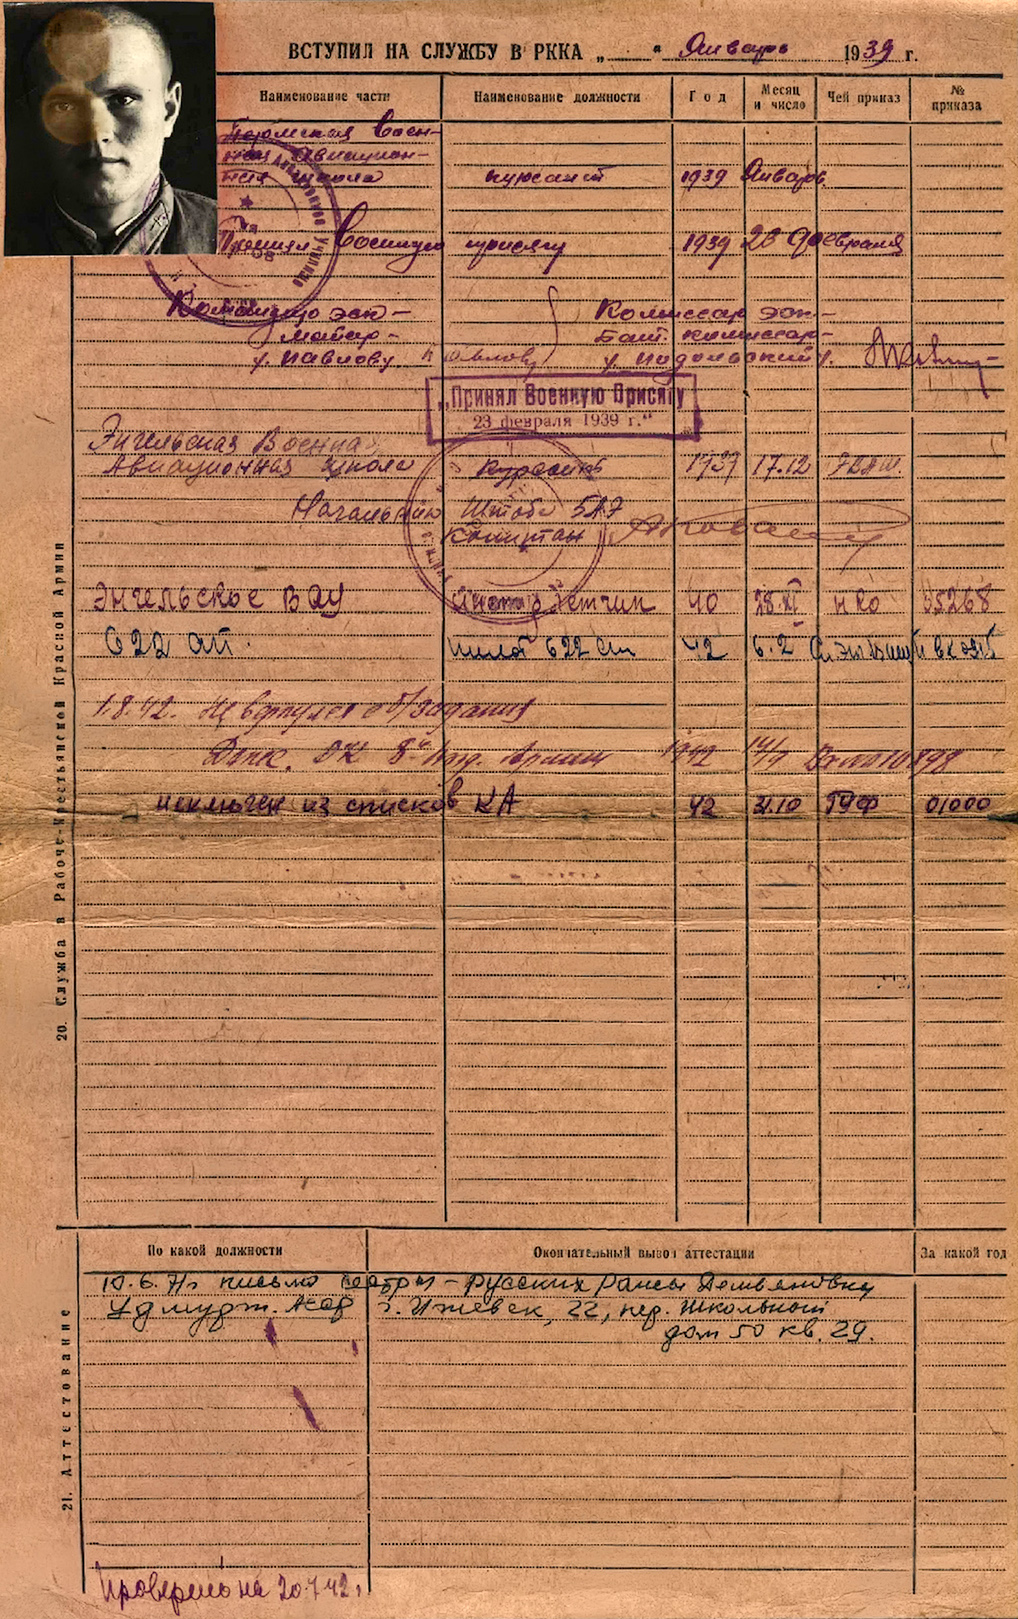 ВСТУПИЛ НА СЛУЖБУ В РККА „ “ Январь 1939 г.
Наименование части Наименование должности Год Месяц и число Чей приказ № приказа
Пермская Воен-
ная Авиацион-
ная школа курсант 1939 Январь
Принял Военную присягу 1939 23 февраля
Командир эск- Комиссар эск-
майор- Бат. комиссар-
у. Павлову. Павлову у. Подольский
„Принял Военную Присягу
23 февраля 1939 г.“
Энгельсная Военная
Авиационная школа Курсант 1939 17.12 ЭВАШ.
Начальник Штаба 5АЭ
Капитан
Энгельское ВАУ летчик 40 28.XI НКО 05268
622 ап. пилот 622 42 6.2
1.8.42. Не вернулся с б/задания
Донес. ОК 8й Возд. Армии 1942 14/9 10898
исключен из списков КА 42 31.10 ГУФ 01000
20. Служба в Рабоче-Крестьянской Красной Армии
По какой должности Окончательный вывод аттестации За какой год
10.6.71г письмо сестры - Русских Раисы Демьяновны
Удмурт. АССР г. Ижевск, 22, пер. Школьный
дом 50 кв. 29.
21. Аттестование
Проверено на 20.7.42г